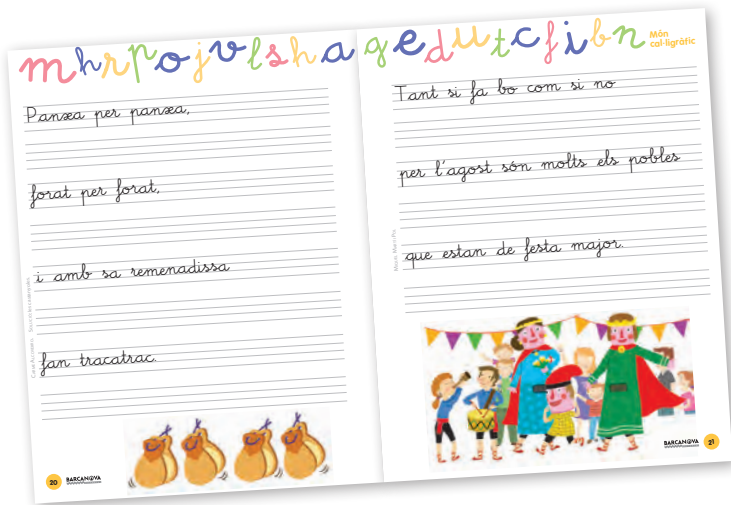 m h r p o j v l s h a g e d u t c f i b n
Món
cal·ligràfic
Panxa per panxa,
forat per forat,
i amb sa remenadissa
fan tracatrac.
20 BARCANOVA
Tant si fa bo com si no
per l'agost són molts els pobles
que estan de festa major.
BARCANOVA 21